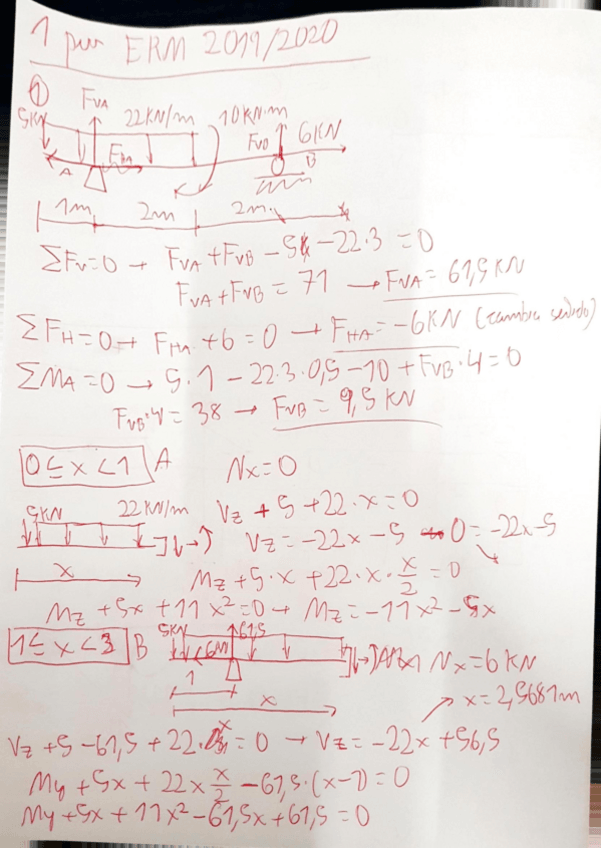 1 par ERM 2019/2020
1
5KN FVA 22KN/m 10KN·m FVB 6KN
A B
1m 2m 2m
ΣFV=0 → FVA+FVB-5-22·3=0
FVA+FVB=71 → FVA=61,5KN
ΣFH=0 → FHA+6=0 → FHA=-6KN (cambia sentido)
ΣMA=0 → 5·1-22·3·0,5-10+FVB·4=0
FVB·4=38 → FVB=9,5KN
0≤x<1 A Nx=0
5KN 22KN/m Vz+5+22·x=0
Vz=-22x-5 0=-22x-5
x Mz+5·x+22·x·x/2=0
Mz+5x+11x²=0 → Mz=-11x²-5x
1≤x<3 B 5KN 61,5 6KN Nx=6KN
1 x x=2,5681m
Vz+5-61,5+22·x=0 → Vz=-22x+56,5
My+5x+22x x/2-61,5·(x-1)=0
My+5x+11x²-61,5x+61,5=0